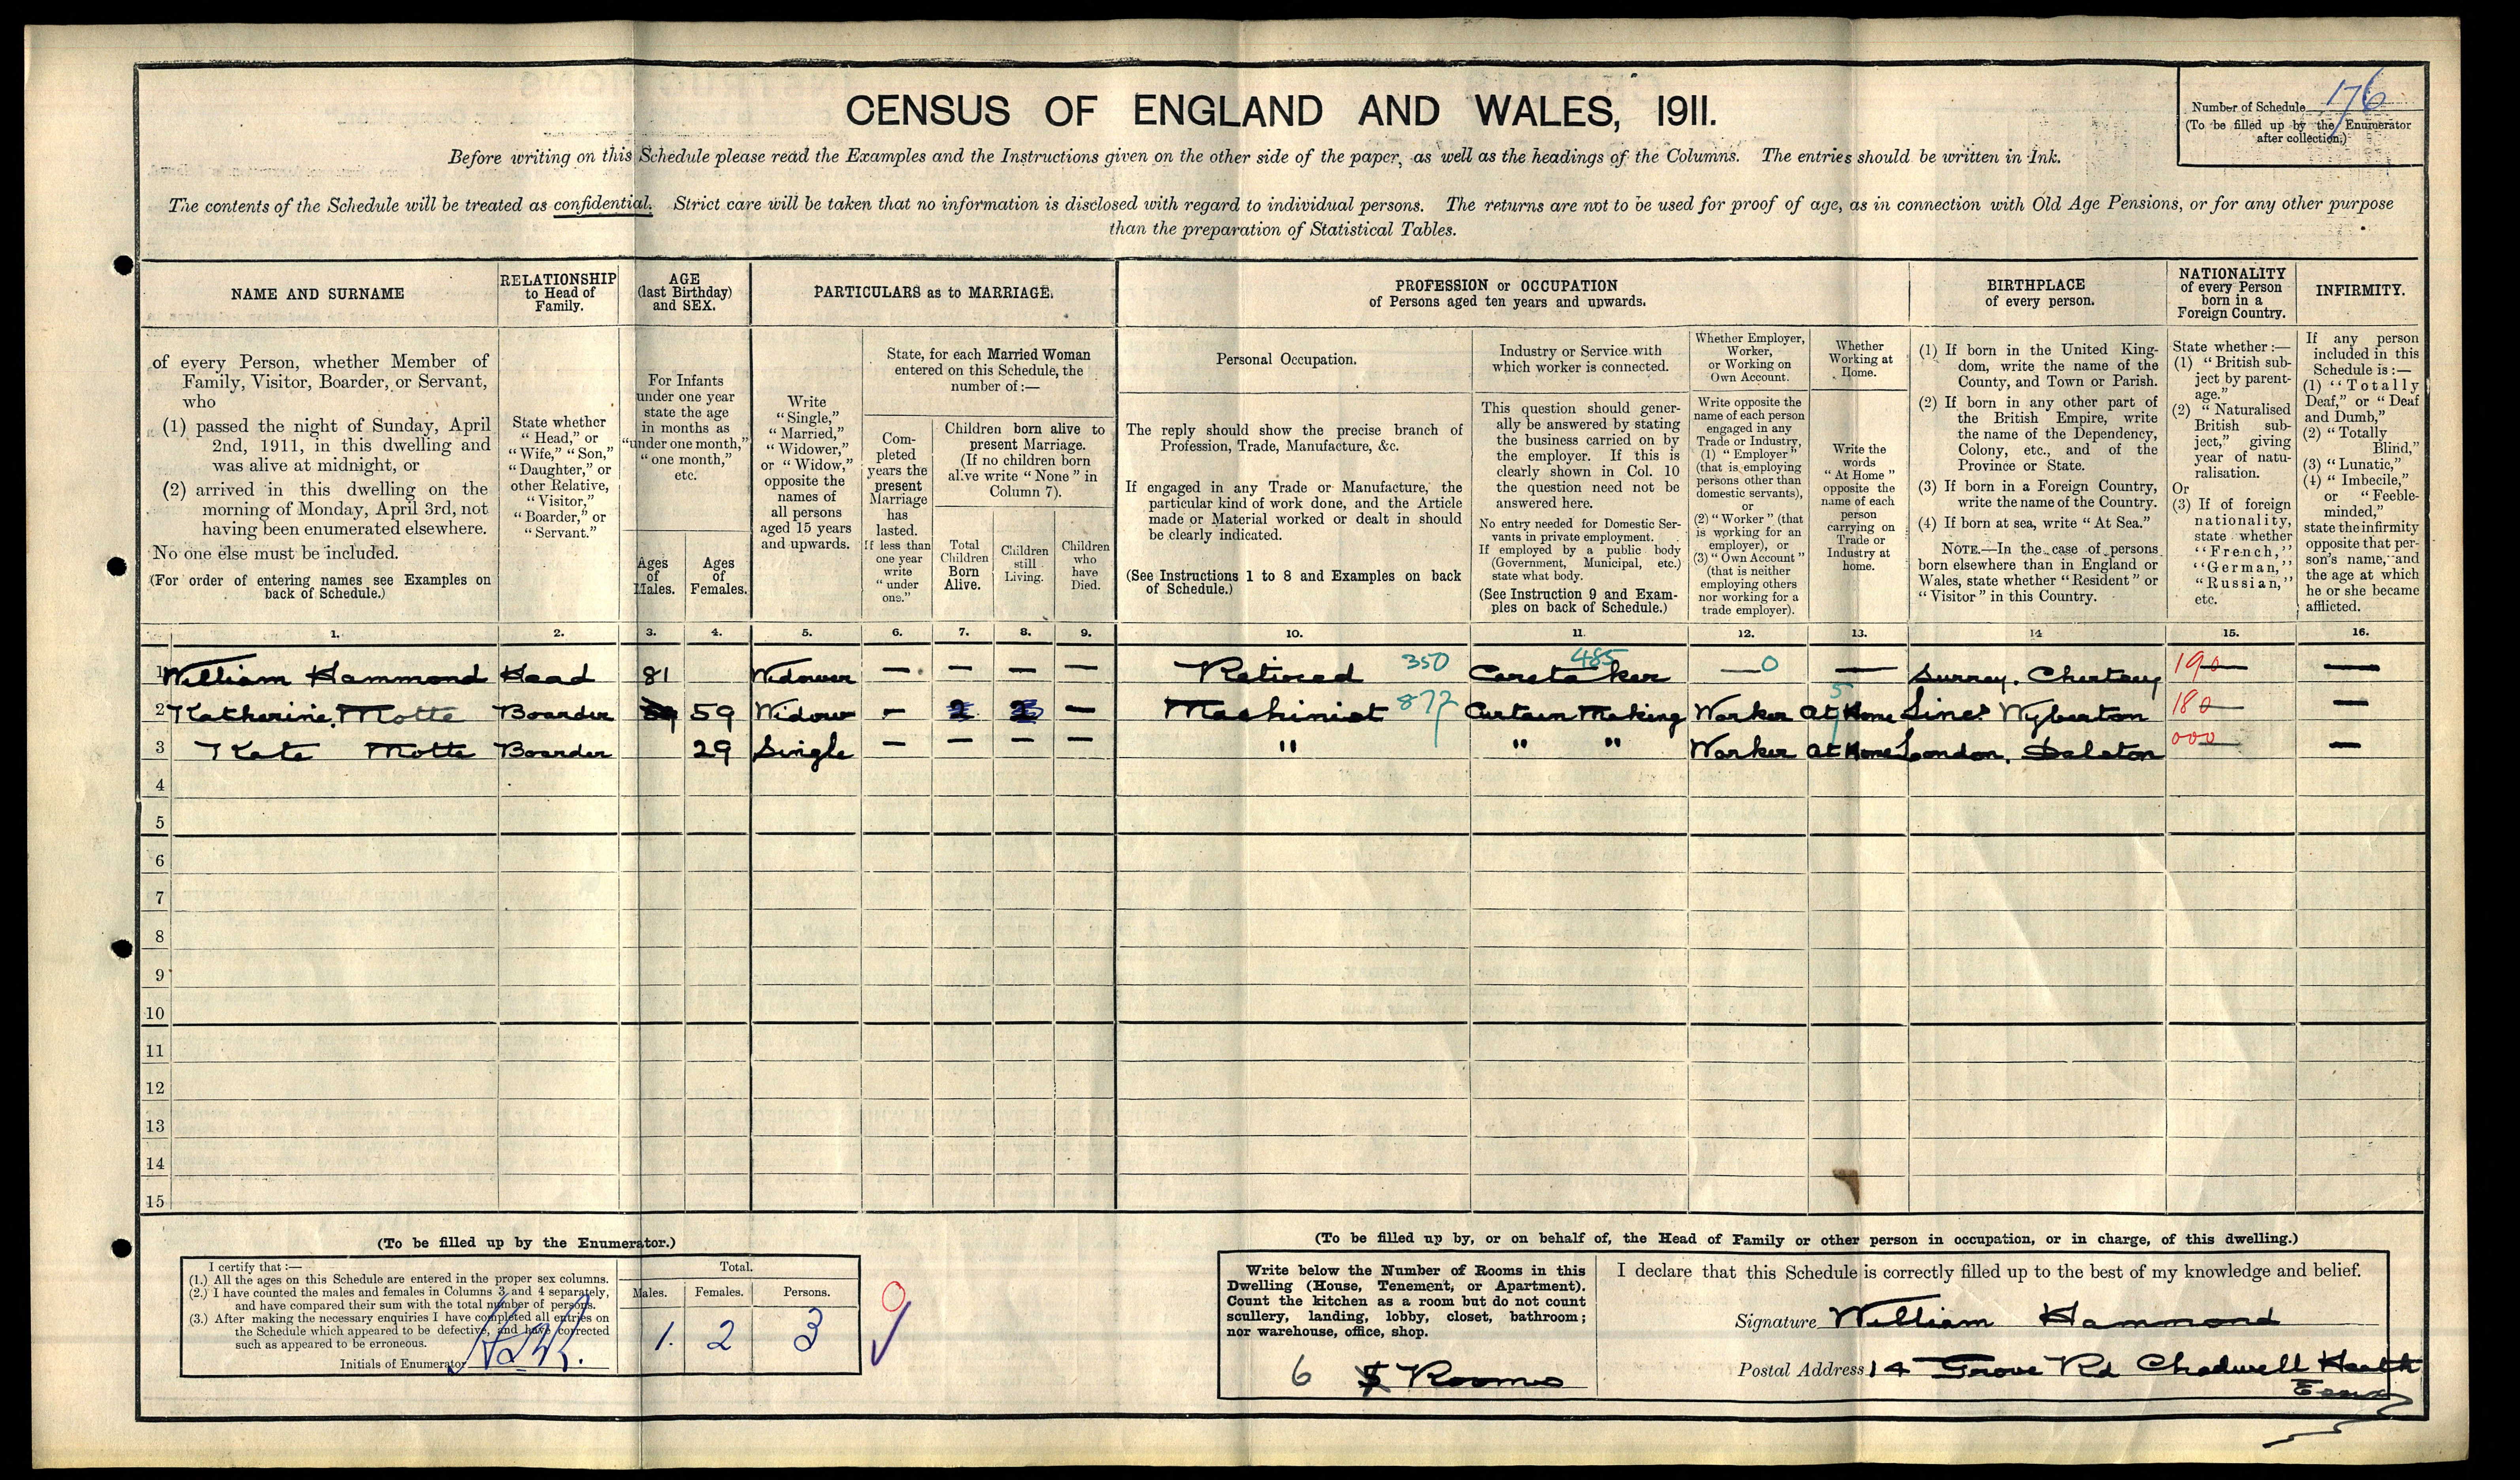 CENSUS OF ENGLAND AND WALES, 1911.
Number of Schedule 176
(To be filled up by the Enumerator
after collection.)
Before writing on this Schedule please read the Examples and the Instructions given on the other side of the paper, as well as the headings of the Columns. The entries should be written in Ink.
The contents of the Schedule will be treated as confidential. Strict care will be taken that no information is disclosed with regard to individual persons. The returns are not to be used for proof of age, as in connection with Old Age Pensions, or for any other purpose
than the preparation of Statistical Tables.
NAME AND SURNAME
of every Person, whether Member of
Family, Visitor, Boarder, or Servant,
who
(1) passed the night of Sunday, April
2nd, 1911, in this dwelling and
was alive at midnight, or
(2) arrived in this dwelling on the
morning of Monday, April 3rd, not
having been enumerated elsewhere.
No one else must be included.
(For order of entering names see Examples on
back of Schedule.)
RELATIONSHIP
to Head of
Family.
State whether
"Head," or
"Wife," "Son,"
"Daughter," or
other Relative,
"Visitor,"
"Boarder," or
"Servant."
AGE
(last Birthday)
and SEX.
For Infants
under one year
state the age
in months as
"under one month,"
"one month,"
etc.
Ages
of
Males.
Ages
of
Females.
PARTICULARS as to MARRIAGE.
Write
"Single,"
"Married,"
"Widower,"
or "Widow,"
opposite the
names of
all persons
aged 15 years
and upwards.
State, for each Married Woman
entered on this Schedule, the
number of:—
Com-
pleted
years the
present
Marriage
has
lasted.
If less than
one year
write
"under
one."
Children born alive to
present Marriage.
(If no children born
alive write "None" in
Column 7).
Total
Children
Born
Alive.
Children
still
Living.
Children
who
have
Died.
PROFESSION or OCCUPATION
of Persons aged ten years and upwards.
Personal Occupation.
The reply should show the precise branch of
Profession, Trade, Manufacture, &c.
If engaged in any Trade or Manufacture, the
particular kind of work done, and the Article
made or Material worked or dealt in should
be clearly indicated.
(See Instructions 1 to 8 and Examples on back
of Schedule.)
Industry or Service with
which worker is connected.
This question should gener-
ally be answered by stating
the business carried on by
the employer. If this is
clearly shown in Col. 10
the question need not be
answered here.
No entry needed for Domestic Ser-
vants in private employment.
If employed by a public body
(Government, Municipal, etc.)
state what body.
(See Instruction 9 and Exam-
ples on back of Schedule.)
Whether Employer,
Worker,
or Working on
Own Account.
Write opposite the
name of each person
engaged in any
Trade or Industry,
(1) "Employer"
(that is employing
persons other than
domestic servants),
or
(2) "Worker" (that
is working for an
employer), or
(3) "Own Account"
(that is neither
employing others
nor working for a
trade employer).
Whether
Working at
Home.
Write the
words
"At Home"
opposite the
name of each
person
carrying on
Trade or
Industry at
home.
BIRTHPLACE
of every person.
(1) If born in the United King-
dom, write the name of the
County, and Town or Parish.
(2) If born in any other part of
the British Empire, write
the name of the Dependency,
Colony, etc., and of the
Province or State.
(3) If born in a Foreign Country,
write the name of the Country.
(4) If born at sea, write "At Sea."
NOTE.—In the case of persons
born elsewhere than in England or
Wales, state whether "Resident" or
"Visitor" in this Country.
NATIONALITY
of every Person
born in a
Foreign Country.
State whether:—
(1) "British sub-
ject by parent-
age."
(2) "Naturalised
British sub-
ject," giving
year of natu-
ralisation.
Or
(3) If of foreign
nationality,
state whether
"French,"
"German,"
"Russian,"
etc.
INFIRMITY.
If any person
included in this
Schedule is:—
(1) "Totally
Deaf," or "Deaf
and Dumb,"
(2) "Totally
Blind,"
(3) "Lunatic,"
(4) "Imbecile,"
or "Feeble-
minded,"
state the infirmity
opposite that per-
son's name, and
the age at which
he or she became
afflicted.
1. 2. 3. 4. 5. 6. 7. 8. 9. 10. 11. 12. 13. 14 15. 16.
1 William Hammond Head 81 Widower — — — — Retired 350 Caretaker 485 — 0 — Surrey. Chertsey 190 —
2 Katherine Motte Boarder 59 Widow — 2 — Machinist 877 Curtain Making Worker At Home Lincs Wyberton 180 —
3 Kate Motte Boarder 29 Single — — — — " " " Worker At Home London. Dalston 000 —
4
5
6
7
8
9
10
11
12
13
14
15
(To be filled up by the Enumerator.)
I certify that:—
(1.) All the ages on this Schedule are entered in the proper sex columns.
(2.) I have counted the males and females in Columns 3 and 4 separately,
and have compared their sum with the total number of persons.
(3.) After making the necessary enquiries I have completed all entries on
the Schedule which appeared to be defective, and have corrected
such as appeared to be erroneous.
Initials of Enumerator
Total.
Males. Females. Persons.
1. 2 3
(To be filled up by, or on behalf of, the Head of Family or other person in occupation, or in charge, of this dwelling.)
Write below the Number of Rooms in this
Dwelling (House, Tenement, or Apartment).
Count the kitchen as a room but do not count
scullery, landing, lobby, closet, bathroom;
nor warehouse, office, shop.
6 Rooms
I declare that this Schedule is correctly filled up to the best of my knowledge and belief.
Signature William Hammond
Postal Address 14 Grove Rd Chadwell Heath
Essex